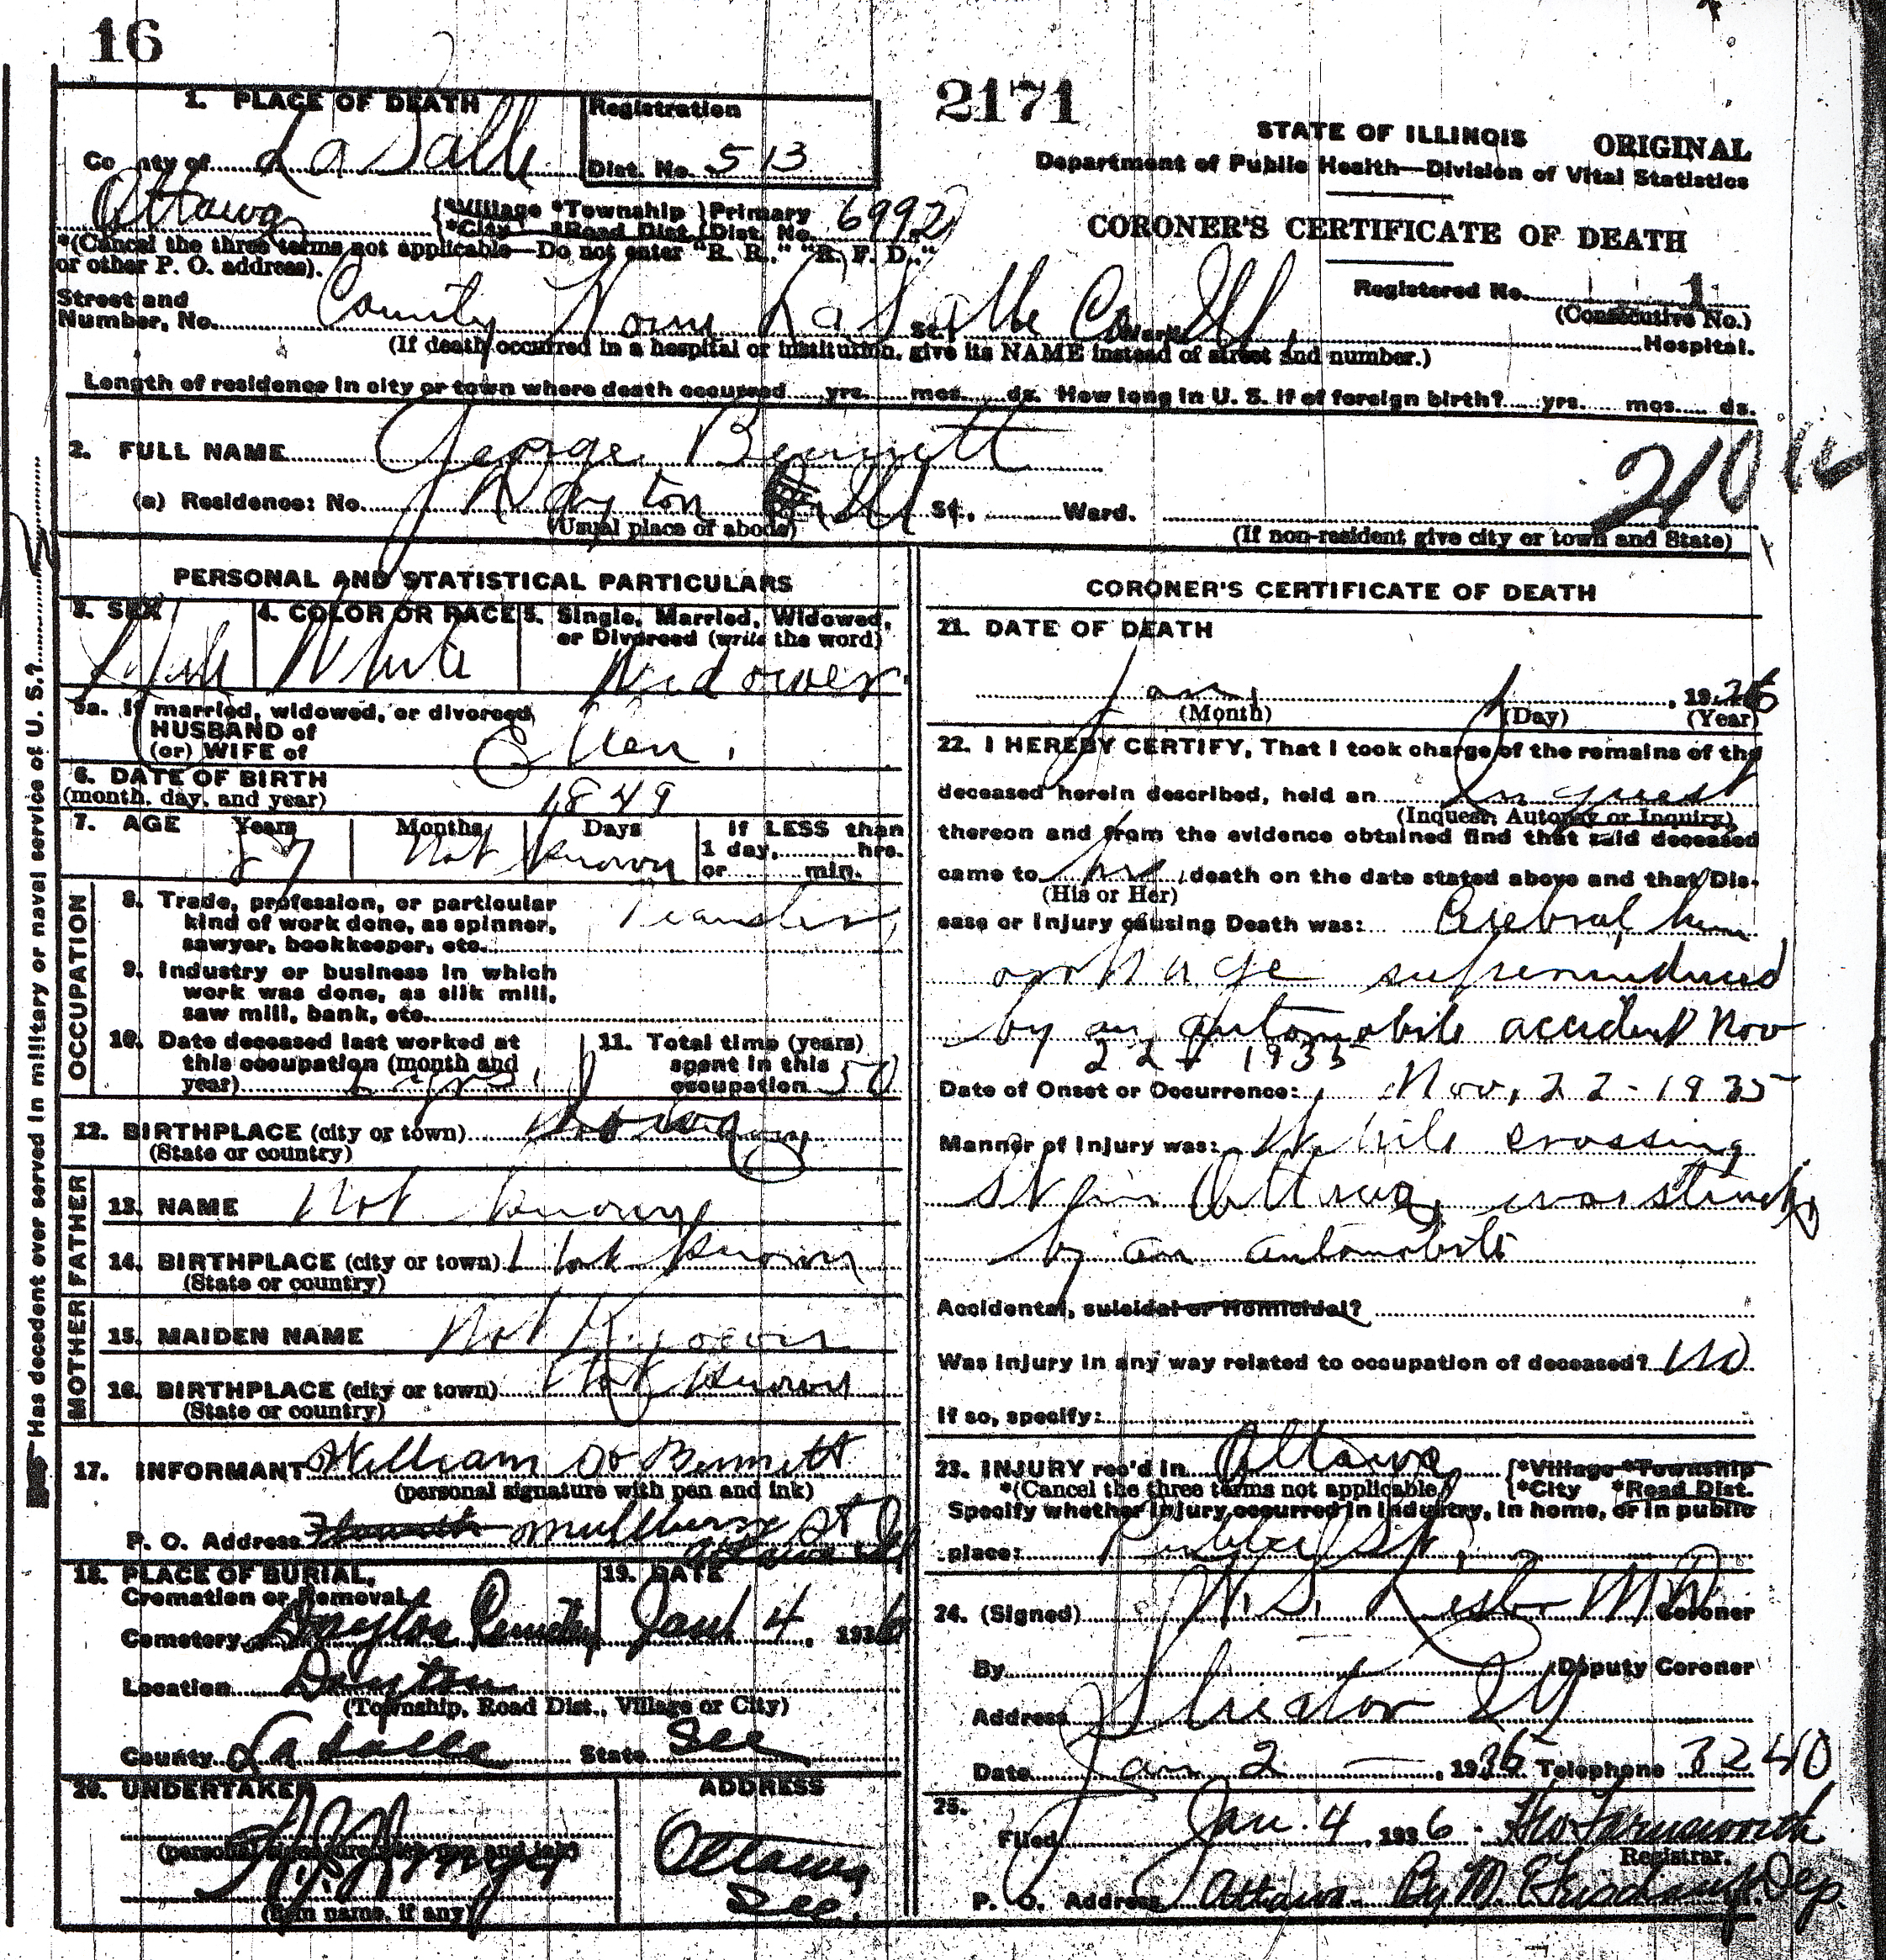 16
2171
STATE OF ILLINOIS ORIGINAL
Department of Public Health—Division of Vital Statistics
CORONER'S CERTIFICATE OF DEATH
Registered No. 1
(Consecutive No.)
1. PLACE OF DEATH
County of La Salle
Registration
Dist. No. 513
Ottawa
*Village *Township Primary
*City *Road Dist. Dist. No. 6992
*(Cancel the three terms not applicable—Do not enter "R. R.," "R. F. D.,"
or other P. O. address).
Street and
Number, No. County Home La Salle Co Ill. St., Ward
Hospital.
(If death occurred in a hospital or institution, give its NAME instead of street and number.)
Length of residence in city or town where death occurred yrs. mos. ds. How long in U. S. if of foreign birth? yrs. mos. ds.
2. FULL NAME George Bennett
(a) Residence: No. Dayton Ill St., Ward.
(Usual place of abode)
(If non-resident give city or town and State)
Has decedent ever served in military or naval service of U. S.?
PERSONAL AND STATISTICAL PARTICULARS
3. SEX
Male
4. COLOR OR RACE
White
5. Single, Married, Widowed,
or Divorced (write the word)
Widower
5a. If married, widowed, or divorced
HUSBAND of
(or) WIFE of
Ellen
6. DATE OF BIRTH
(month, day, and year) 1849
7. AGE Years Months Days If LESS than
1 day, hrs.
or min.
87 Not Known
OCCUPATION
8. Trade, profession, or particular
kind of work done, as spinner,
sawyer, bookkeeper, etc.
9. Industry or business in which
work was done, as silk mill,
saw mill, bank, etc.
10. Date deceased last worked at
this occupation (month and
year)
11. Total time (years)
spent in this
occupation 50
12. BIRTHPLACE (city or town)
(State or country)
FATHER
13. NAME Not Known
14. BIRTHPLACE (city or town) Not Known
(State or country)
MOTHER
15. MAIDEN NAME Not Known
16. BIRTHPLACE (city or town) Not Known
(State or country)
17. INFORMANT William Bennett
(personal signature with pen and ink)
P. O. Address St
Ottawa Ill
18. PLACE OF BURIAL,
Cremation or Removal
Cemetery Dayton Cemetery
19. DATE
Jan 4, 1936
Location Dayton
(Township, Road Dist., Village or City)
County La Salle State Ill
20. UNDERTAKER
(personal signature with pen and ink)
(firm name, if any)
ADDRESS
Ottawa
Ill.
CORONER'S CERTIFICATE OF DEATH
21. DATE OF DEATH
Jan. 1, 1936
(Month) (Day) (Year)
22. I HEREBY CERTIFY, That I took charge of the remains of the
deceased herein described, held an Inquest
(Inquest, Autopsy or Inquiry)
thereon and from the evidence obtained find that said deceased
came to his death on the date stated above and that Dis-
(His or Her)
ease or Injury causing Death was: Cerebral hem
orrhage superinduced
by an automobile accident Nov
22 1935
Date of Onset or Occurrence: Nov, 22 - 1935
Manner of Injury was: While crossing
St in Ottawa, was struck
by an automobile
Accidental, suicidal or homicidal?
Was injury in any way related to occupation of deceased? No
If so, specify:
23. INJURY rec'd in Ottawa *Village *Township
*(Cancel the three terms not applicable) *City *Road Dist.
Specify whether injury occurred in industry, in home, or in public
place: Public St.
24. (Signed) W. S. Lester MD Coroner
By Deputy Coroner
Address Streator Ill
Date Jan 2, 1936 Telephone 3240
25.
Filed Jan. 4, 1936 Farnsworth
Registrar.
P. O. Address Ottawa By Dep.